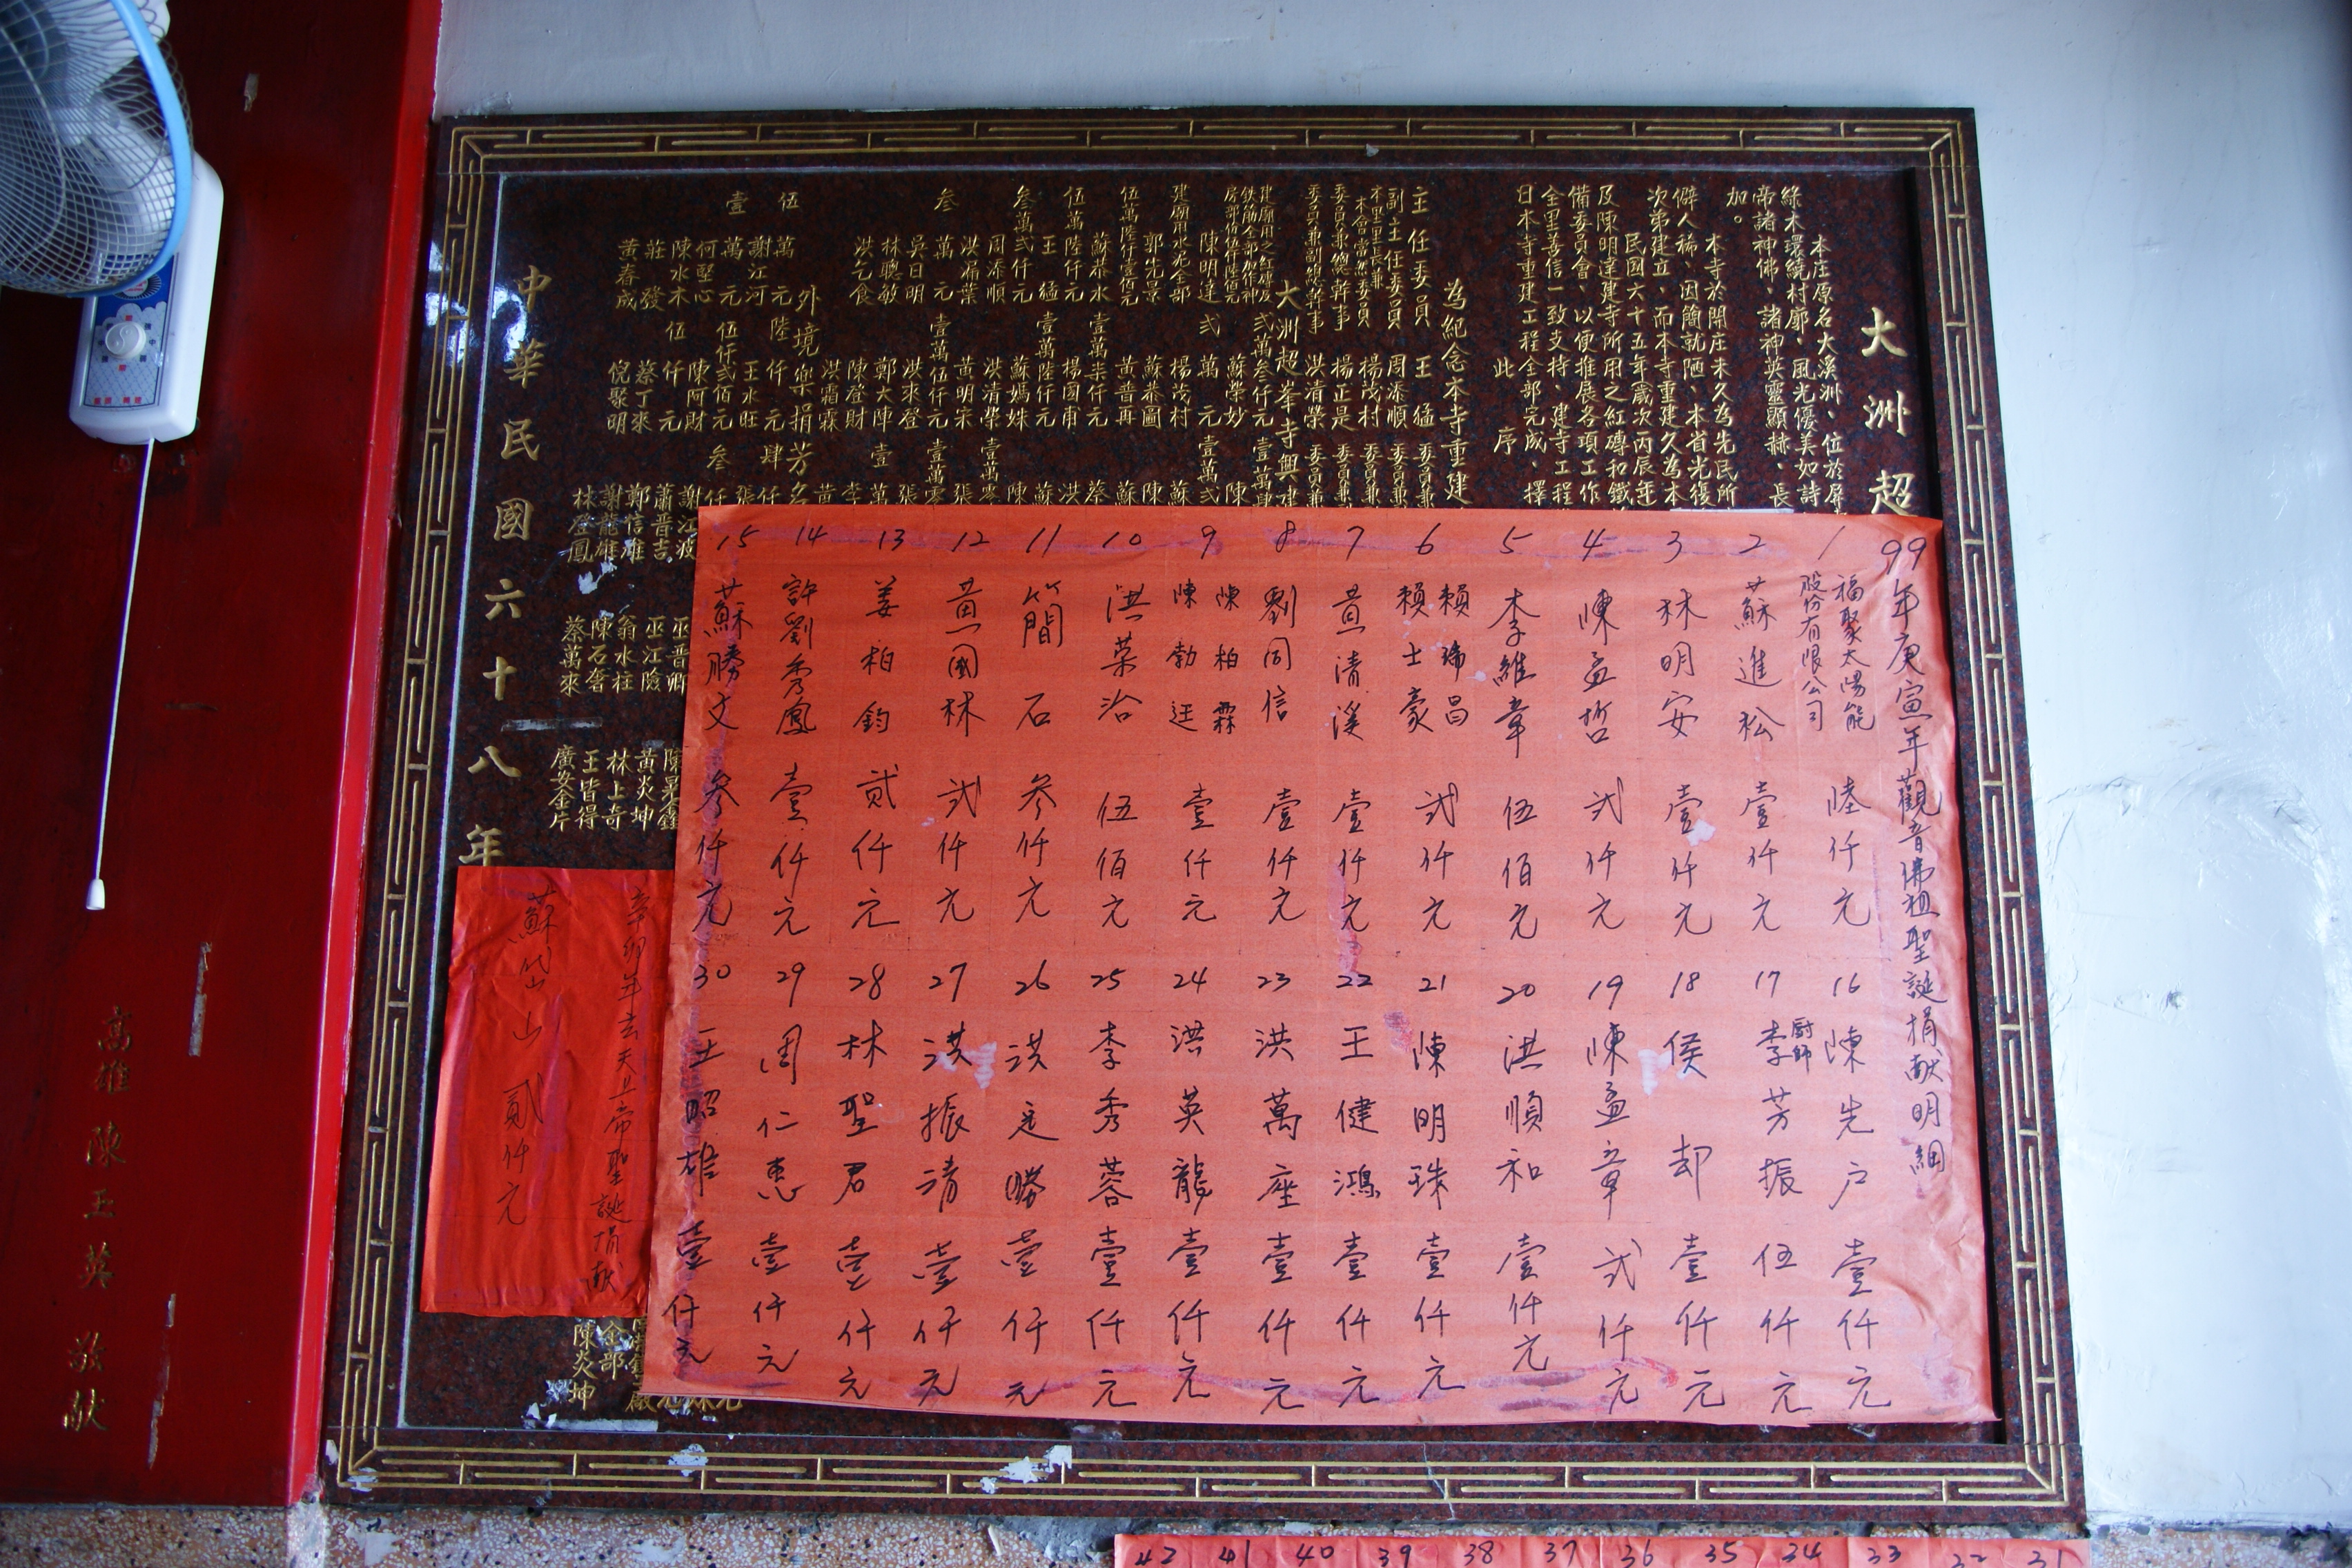 大洲超
本庄原名大溪洲、位於屏
綠木環繞村廓、風光優美如詩
帝諸神佛、諸神英靈顯赫、長
加。
本寺於開庄未久為先民所
僻人稀、因簡就陋、本省光復
次第建立、而本寺重建久為本
民國六十五年(歲次丙辰年
及陳明達建寺所用之紅磚和鐵
備委員會、以便推展各項工作
全里善信一致支持、建寺工程
日本寺重建工程全部完成、擇
此序
為紀念本寺重建
主任委員 王猛 委員兼
副主任委員 周添順 委員兼
本里里長兼
本會常務委員 楊茂村 委員兼
委員兼總幹事 楊正是 委員兼
委員兼副總幹事 洪清榮 委員兼
大洲超峯寺興建
陳明達 蘇榮妙 陳
弍萬元 壹萬弍
建廟用水泥全部 楊茂村 蘇
郭先景 蘇恭圖 陳
伍萬陸仟壹佰元 黃普再 蘇
蘇恭水 壹萬柒仟元 蔡
伍萬陸仟元 楊國甫 洪
王猛 壹萬陸仟元 蘇
叁萬弍仟元 蘇媽妹 陳
周添順 洪清榮 壹萬零
洪福葉 黃明宗 張
叁萬元 壹萬伍仟元 壹萬零
吳日明 洪來登 張
林聰敏 鄭大陣 壹萬
洪乞食 陳登財 李
洪霜霖 黃
外境樂捐芳名
伍萬元 陸仟元 肆仟
謝江河 王水旺 張
壹萬元 伍仟弍佰元 叁仟
何堅心 陳阿財 謝江波
陳水木 伍仟元 蕭晋吉
莊發 蔡丁來 鄭信雄
黃春成 倪聚明 謝龍雄
林登鳳
巫晋卿
巫江險
翁水柱
陳石奢
蔡萬來
黃炎坤
林上奇
王皆得
廣安金片
金部
陳炎坤
中華民國六十八年
99年庚寅年觀音佛祖聖誕捐献明細
1 福聚太陽能股份有限公司 陸仟元
2 蘇進松 壹仟元
3 林明安 壹仟元
4 陳孟哲 弍仟元
5 李維章 伍佰元
6 賴瑞昌 賴士豪 弍仟元
7 黃清溪 壹仟元
8 劉同信 壹仟元
9 陳柏霖 陳勃廷 壹仟元
10 洪榮治 伍佰元
11 簡石 叁仟元
12 黃國林 弍仟元
13 姜柏鈞 貳仟元
14 許劉秀鳳 壹仟元
15 蘇勝文 叁仟元
16 陳先戶 壹仟元
17 廚師 李芳振 伍仟元
18 侯却 壹仟元
19 陳孟章 弍仟元
20 洪順和 壹仟元
21 陳明珠 壹仟元
22 王健鴻 壹仟元
23 洪萬座 壹仟元
24 洪英龍 壹仟元
25 李秀蓉 壹仟元
26 洪定勝 壹仟元
27 洪振清 壹仟元
28 林聖君 壹仟元
29 周仁惠 壹仟元
30 王昭雄 壹仟元
辛卯年玄天上帝聖誕捐献
蘇岱山 貳仟元
高雄陳玉英敬献
42 41 40 39 38 37 36 35 34 33 32 31